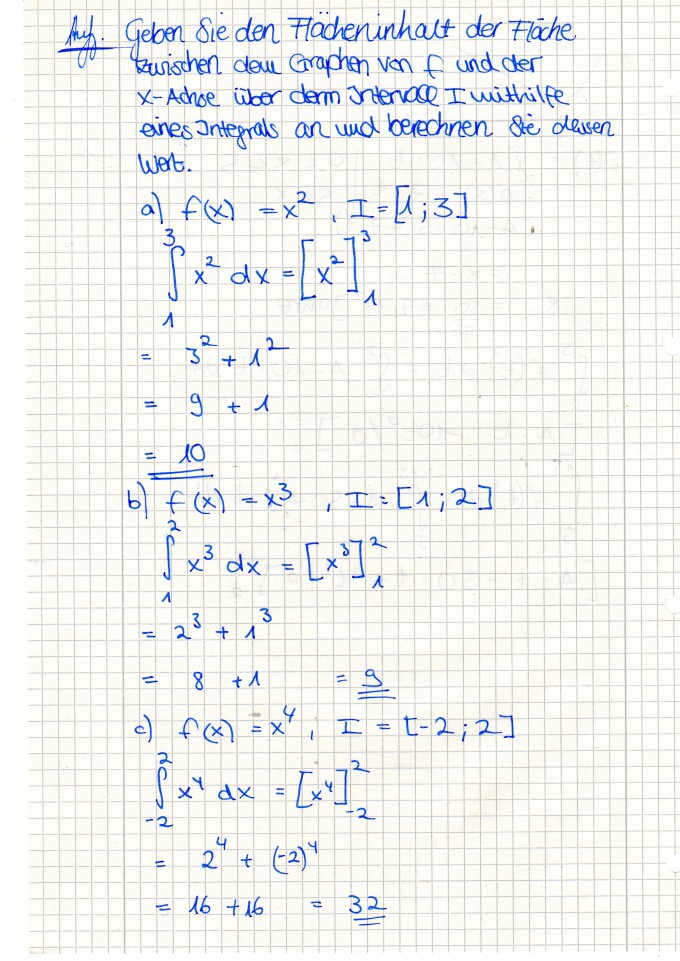 Auf. Geben Sie den Flächeninhalt der Fläche
zwischen dem Graphen von f und der
x-Achse über derm Intervall I mithilfe
eines Integrals an und berechnen Sie dessen
Wert.
a) f(x) = x² , I = [1 ; 3]
∫₁³ x² dx = [x²]₁³
= 3² + 1²
= 9 + 1
= 10
b) f(x) = x³ , I = [1 ; 2]
∫₁² x³ dx = [x³]₁²
= 2³ + 1³
= 8 + 1 = 9
c) f(x) = x⁴ , I = [-2 ; 2]
∫₋₂² x⁴ dx = [x⁴]₋₂²
= 2⁴ + (-2)⁴
= 16 + 16 = 32